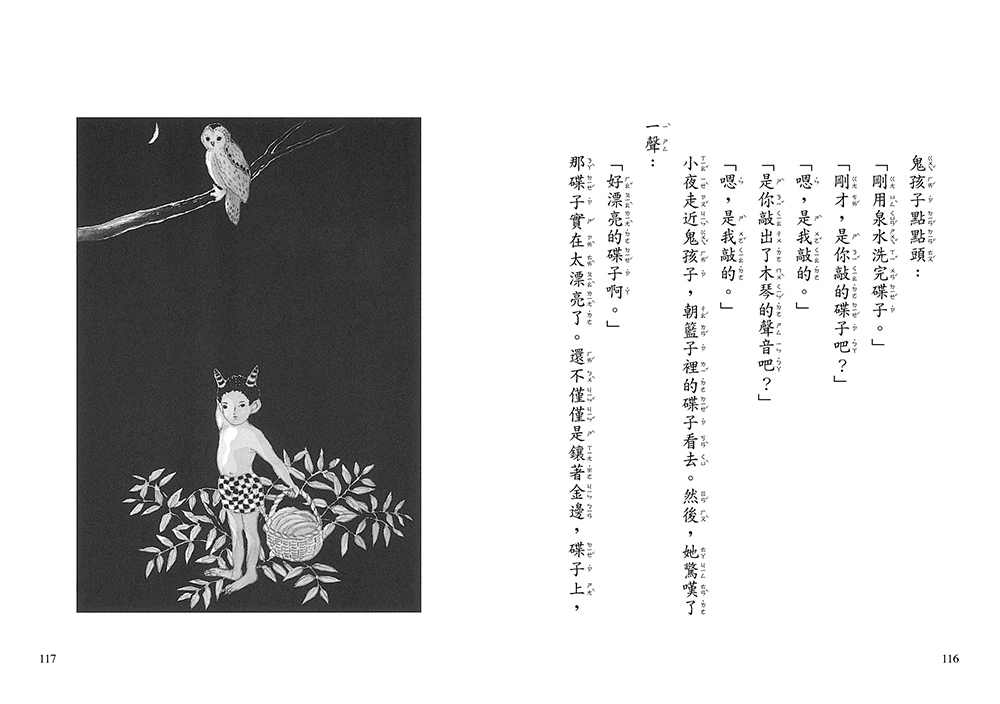 鬼孩子點點頭：
「剛用泉水洗完碟子。」
「剛才，是你敲的碟子吧？」
「嗯，是我敲的。」
「是你敲出了木琴的聲音吧？」
「嗯，是我敲的。」
小夜走近鬼孩子，朝籃子裡的碟子看去。然後，她驚嘆了
一聲：
「好漂亮的碟子啊。」
那碟子實在太漂亮了。還不僅僅是鑲著金邊，碟子上，
116
117